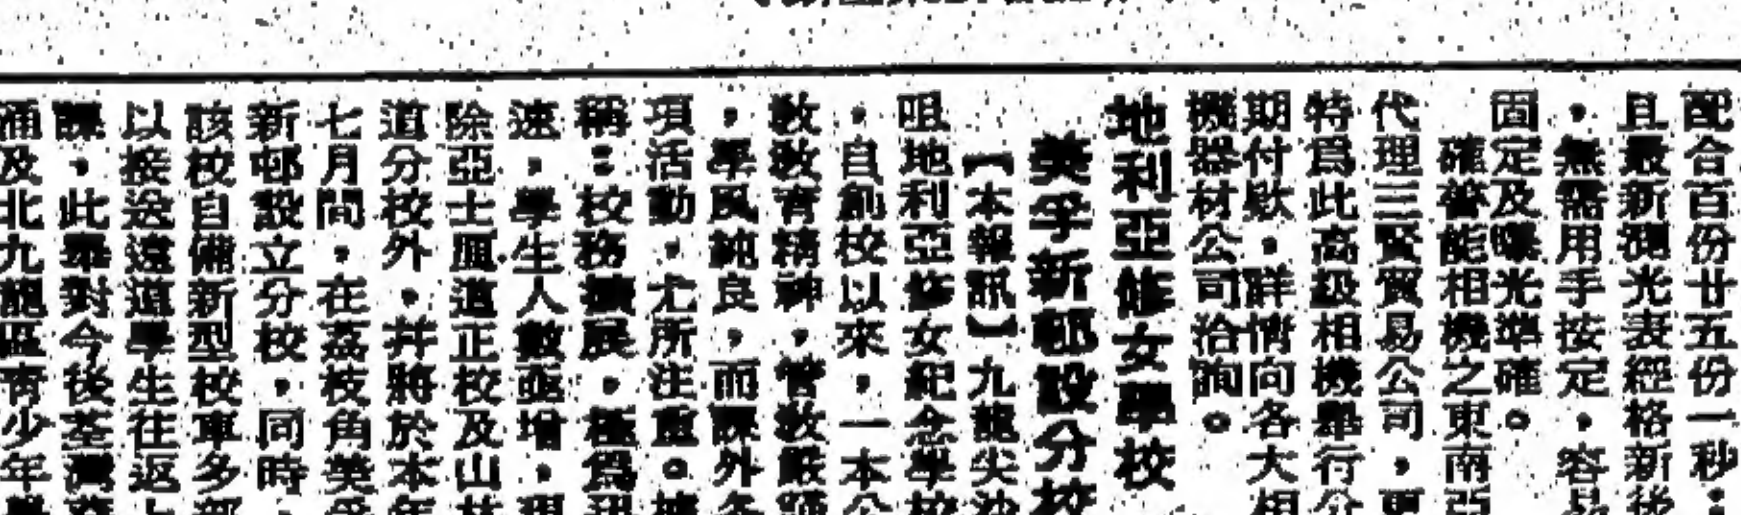 配合百份廿五份一秒；
且最新測光表經格新後
，無需用手按定，容易
固定及曝光準確。
確普能相機之東南亞
代理三賢貿易公司，更
特爲此高級相機舉行分
期付欵，詳情向各大相
機器材公司洽詢。
地利亞修女學校
美孚新邨設分校
【本報訊】九龍尖沙
咀地利亞修女紀念學校
，自創校以來，一本公
敎敎育精神，管敎嚴
，學風純良，而課外各
項活動，尤所注重。據
稱：校務擴展，極爲迅
速，學生人數亟增，現
除亞士厘道正校及山林
道分校外，幷將於本年
七月間，在荔枝角美孚
新邨設立分校，同時，
該校自備新型校車多部
以接送遠道學生往返上
課，此舉對今後荃灣葵
涌及北九龍區靑少年